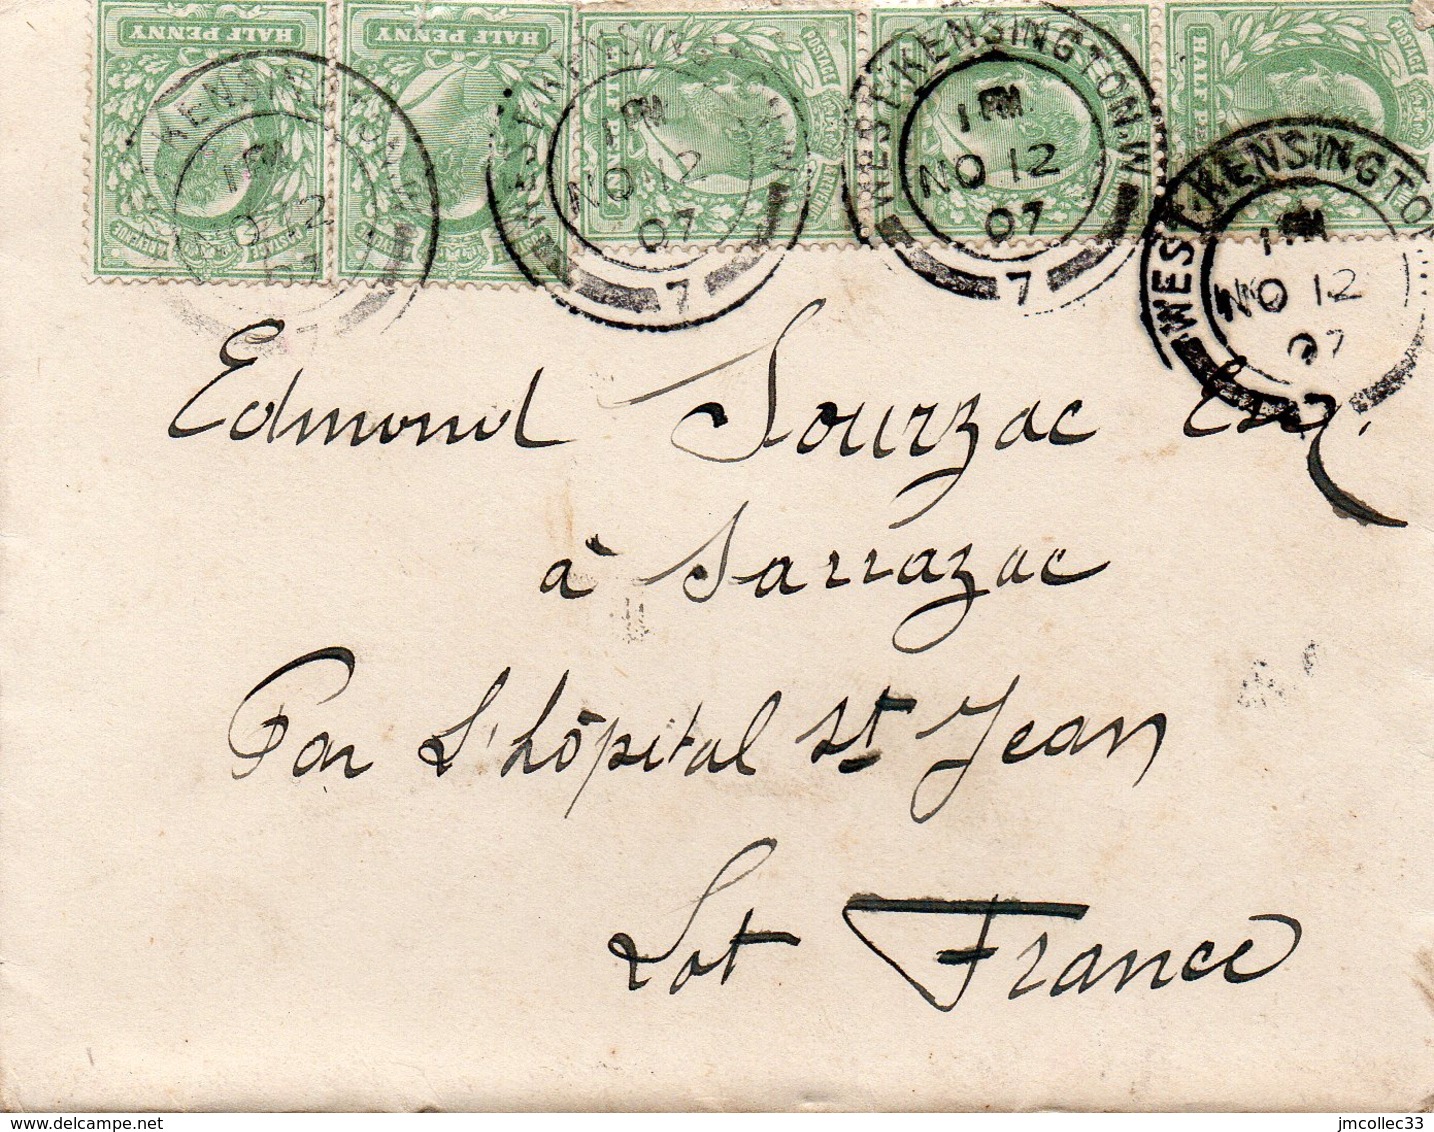 HALF PENNY HALF PENNY
POSTAGE POSTAGE
HALF PENNY
REVENUE
KENSINGTON.W
1 PM
NO 12
07
7
WEST KENSINGTON.W
1 PM
NO 12
07
7
WEST.KENSINGTON.W
1 PM
NO 12
07
7
WEST.KENSINGTO
1 PM
NO 12
07
Edmond Sourzac Esq.
à Sarrazac
Par L'hôpital St Jean
Lot France
www.delcampe.net
jmcollec33